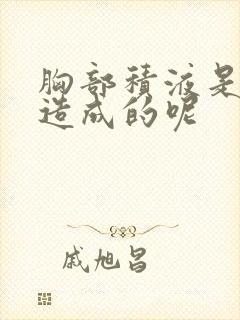 胸部積液是
造成的呢
戚旭昌